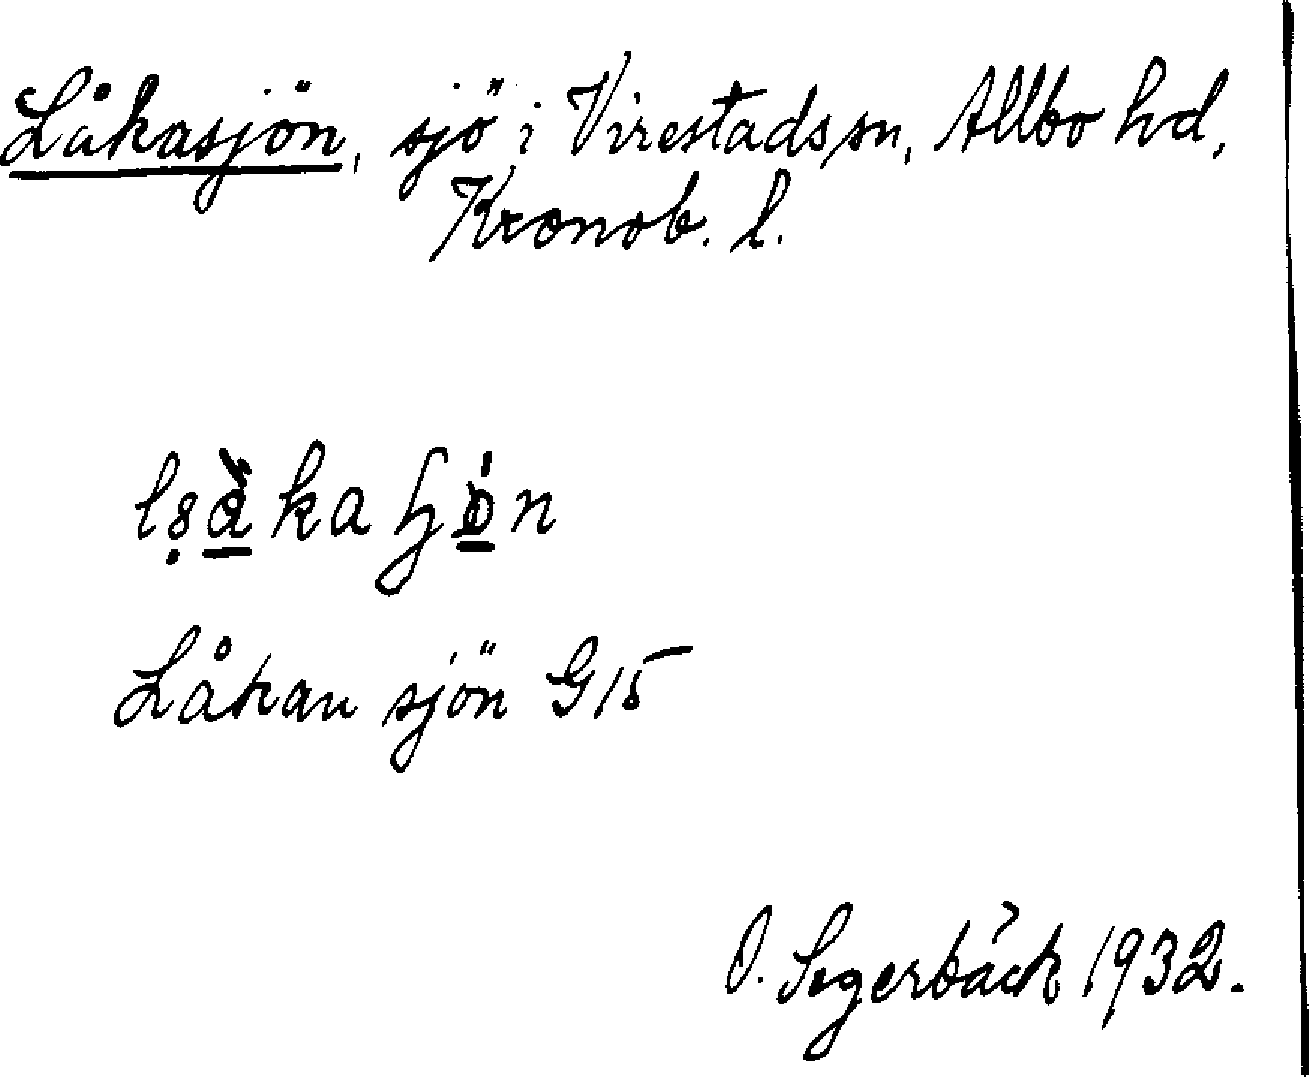 Låkasjön, sjö i Virestads sn, Allbo hd,
Kronob. l.
Låkan sjön G 15
O. Segerbäck 1932.